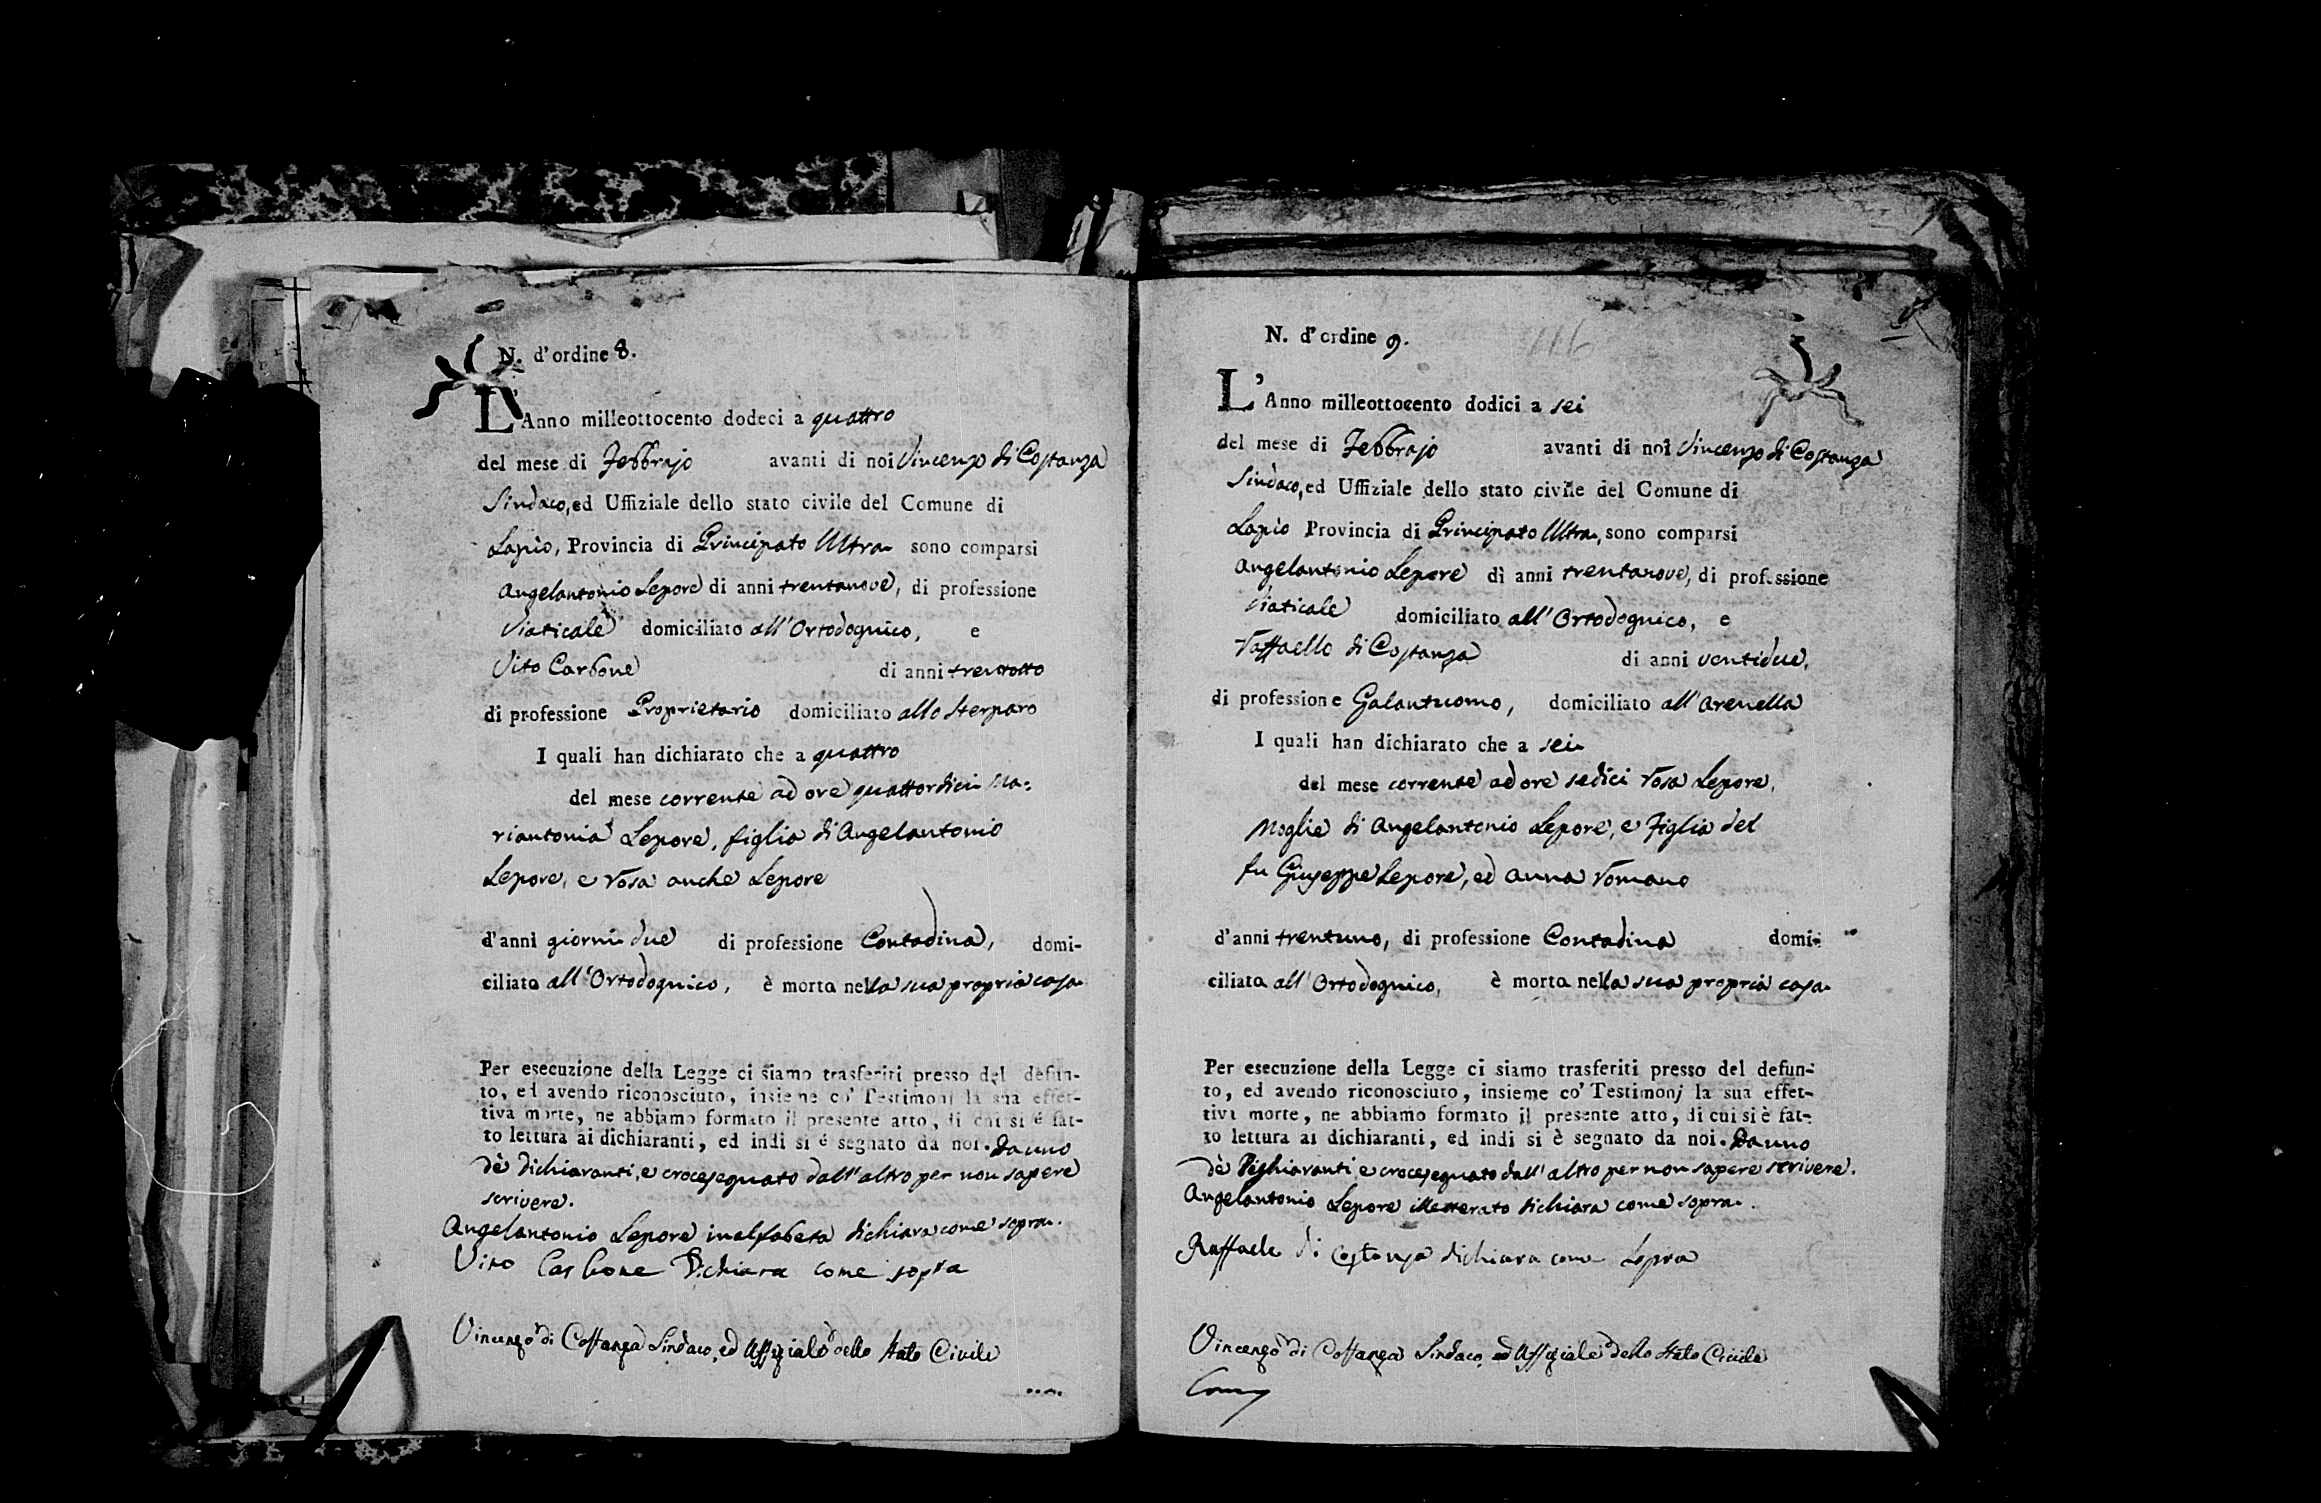 N. d'ordine 8.
L'Anno milleottocento dodeci a quattro
del mese di Febbrajo avanti di noi Vincenzo di Costanza
Sindaco, ed Uffiziale dello stato civile del Comune di
Lapio, Provincia di Principato Ultra sono comparsi
Angelantonio Lepore di anni trentanove, di professione
Viaticale domiciliato all'Ortodognico, e
Vito Carbone di anni trentotto
di professione Proprietario domiciliato allo Sterparo
I quali han dichiarato che a quattro
del mese corrente ad ore quattordici Ma:
riantonia Lepore, figlia di Angelantonio
Lepore, e Rosa anche Lepore
d'anni giorni due di professione Contadina, domi-
ciliata all'Ortodognico, è morta nella sua propria casa
Per esecuzione della Legge ci siamo trasferiti presso del defun-
to, ed avendo riconosciuto, insieme co' Testimonj la sua effet-
tiva morte, ne abbiamo formato il presente atto, di cui si è fat-
to lettura ai dichiaranti, ed indi si è segnato da noi. Da uno
de' dichiaranti, e crocesegnato dall'altro per non sapere
scrivere.
Angelantonio Lepore inalfabeta dichiara come sopra.
Vito Carbone Dichiara come sopra
Vincenzo di Costanza Sindaco, ed Uffiziale dello Stato Civile
N. d'ordine 9.
116
L'Anno milleottocento dodici a sei
del mese di Febbrajo avanti di noi Vincenzo di Costanza
Sindaco, ed Uffiziale dello stato civile del Comune di
Lapio Provincia di Principato Ultra, sono comparsi
Angelantonio Lepore di anni trentanove, di professione
Viaticale domiciliato all'Ortodognico, e
Raffaello di Costanza di anni ventidue,
di professione Galantuomo, domiciliato all'Arenella
I quali han dichiarato che a sei
del mese corrente ad ore sedici Rosa Lepore,
Moglie di Angelantonio Lepore, e Figlia del
fu Giuseppe Lepore, ed Anna Romano
d'anni trentuno, di professione Contadina domi-
ciliata all'Ortodognico, è morta nella sua propria casa
Per esecuzione della Legge ci siamo trasferiti presso del defun-
to, ed avendo riconosciuto, insieme co' Testimonj la sua effet-
tiva morte, ne abbiamo formato il presente atto, di cui si è fat-
to lettura ai dichiaranti, ed indi si è segnato da noi. Da uno
de' Dighiaranti e crocesegnato dall'altro per non sapere scrivere.
Angelantonio Lepore illetterato dichiara come sopra.
Raffaele di Costanza dichiara come Sopra
Vincenzo di Costanza Sindaco, ed Uffiziale dello Stato Civile